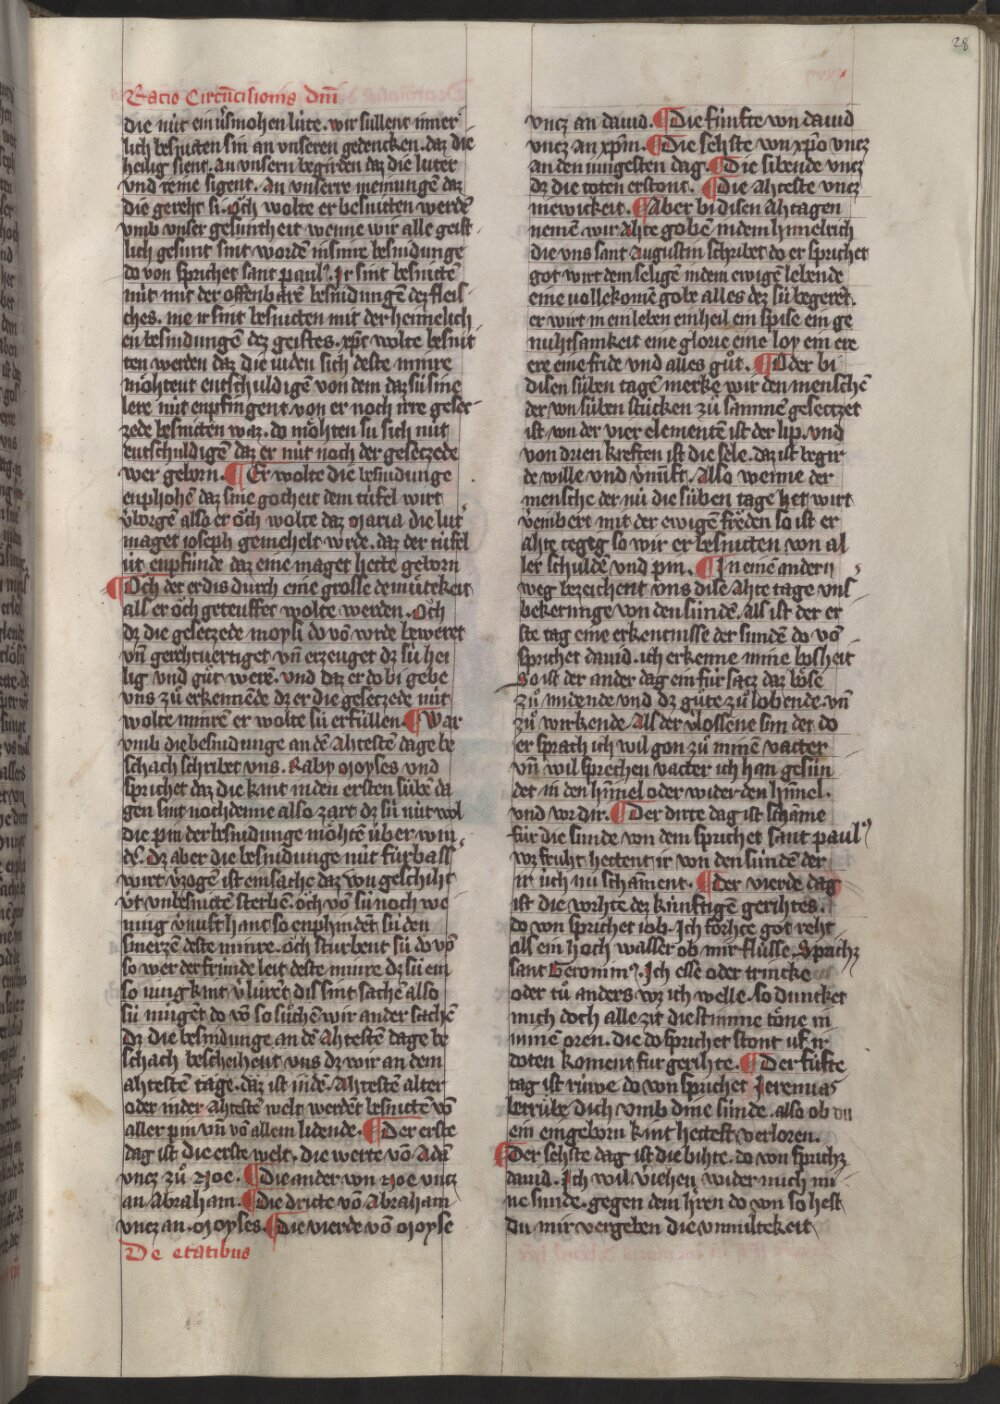 28
Racio Circūcisionis dnī
die nüt ein ůsmohen lüte. wir süllent inner
lich besnitten sin an vnseren gedencken. daz die
heilig sient. an vnsern begirden daz die luter
vnd reine sigent. An vnserre meinungen daz
die gereht si. Och wolte er besnitten werdē
vmb vnser gesuntheit wenne wir alle geist
lich gesunt sint wordē in sinre besnidunge
do von sprichet sant paul9. Ir sint besnittē
nüt mit der offenbarē besnidungē dez fleis
ches. me ir sint besnitten mit der heimelich
en besnidungen dez geistes. xp̄c wolte besnit
ten werden daz die iuden sich deste minre
möhtent entschuldigē von dem daz sü sine
lere nüt enpfingent von er noch irre gesec
zede besnitten waz. do möhten sü sich nüt
entschuldigē daz er nüt noch der gesetzede
wer geborn. Er wolte die besnidunge
enpfohē daz sine gotheit dem tüfel wirt
v̓borgē also er öch wolte daz Maria die lut
maget ioseph gemehelt wrde. daz der tüfel
üt enpfünde daz eine maget hette geborn
Och der erdis durch eine grosse demütekeit
alß er öch geteuffet wolte werden. Och
dz die gesetzede moysi do vō wrde beweret
vn̄ gerehtuertiget vn̄ erzeuget dz sü hei
lig vnd güt werē. vnd daz er do bi gebe
vns zů erkennēde dz er die gesetzede nüt
wolte minrē er wolte sü erfüllen. War
vmb die besnidunge an dē Ahtestē dage be
schach schribet vns. Raby Moyses vnd
sprichet daz die kint in den ersten sübē da
gen sint noch denne also zart dz sü nüt wol
die pin der besnidunge möhtē über win
dē. dz aber die besnidunge nüt fürbass
wirt v̓zogē ist ein sache daz von geschiht
üt vnbesnittē sterbē. och vō sü noch we
ning v̓nuft hant so enphindēt sü den
smerzē deste minre. och sturbent sü do vō
so wer der fründe leit deste minre dz sü ein
so iung kint v̓lürēt dis sint sachē also
sü mügēt do vō so süchē wir ander sachē
dz die besnidunge an dē Ahtestē tage be
schach bescheihent vns dz wir an dem
ahtestē tage. daz ist in dē. Ahtestē alter
oder in der Ahtestē welt werdēt besnittē vō
aller pin vn̄ vō allem lidende. Der erste
dag ist die erste welt. die werte vō Adā
vncz zů Noe. Die ander von Noe vncz
an Abraham. Die dritte vō Abraham
vncz an. Moyses. Die vierde vō Moyse
De etatibus
vncz an dauid. Die fünfte von dauid
vncz an xpm̄. Die sehste von xpō vncz
an den iungesten dag. Die sibende vncz
dz die toten erstont. Die Ahteste vncz
in ewickeit. Aber bi disen Ahtagen
nemē wir Ahte gobē in dem himelrich
die vns sant Augustin schribet do er sprichet
got wirt dem seligē in dem ewigē lebende
eine vollekomē gobe alles dez sü begerēt.
er wirt in ein leben ein heil ein spise ein ge
nuhtsamkeit eine glorie eine loy ein ere
ere eine fride vnd alles gůt. Oder bi
disen süben tagē merkē wir den menschē
der von süben stücken zů samnē gesetzet
ist von der vier elementē ist der lip. vnd
von drien kreften ist die sele. daz ist begir
de wille vnd v̓nüft. Also wenne der
mensche der nü die süben tage het wirt
v̓embert mit der ewigē fröden so ist er
ahte tegeg so wir er besnitten von al
ler schulde vnd pin. In einē andern
weg bezeichent vns dise Ahte tage vns
bekerunge von den sündē. Als ist der er
ste tag eine erkentnisse der sundē do vō
sprichet dauid. ich erkenne mine bosheit
So ist der ander dag ein für sacz daz böse
zů midende vnd dz güte zů lobende. vn̄
zů wirkende Als der v̓lossene sun det do
er sprach ich wil gon zů minē vatter
vn̄ wil sprechen vatter ich han gesün
det in den himel oder wider den himel.
vnd vor dir. Der dirte dag ist schāme
für die sunde von dem sprichet sant paul9
wz fruht hettent ir von den sündē der
ir üch nu schāment. Der vierde dag
ist die vorhte dez künftigē gerihtes.
do von sprichet iob. Ich förhte got reht
als ein hoch wasser ob mir flüsse. Sprichz
sant Geronim9. Ich esse oder trincke
oder tü anders wz ich welle. so duncket
mich doch alle zit die stimme töne in
minē oren. die do sprichet stont uf ir
doten koment für gerihte. Der fūfte
tag ist rüwe do von sprichet Jeremias
betrübe dich vmb dine sünde. also ob du
ein eingeborn kint hettest verloren.
Der sehste dag ist die bihte. do von sprichz
dauid. Ich wil v̓iehen wider mich mi
ne sunde. gegen dem h̓ren do von so hest
du mir vergeben die vnmiltekeit